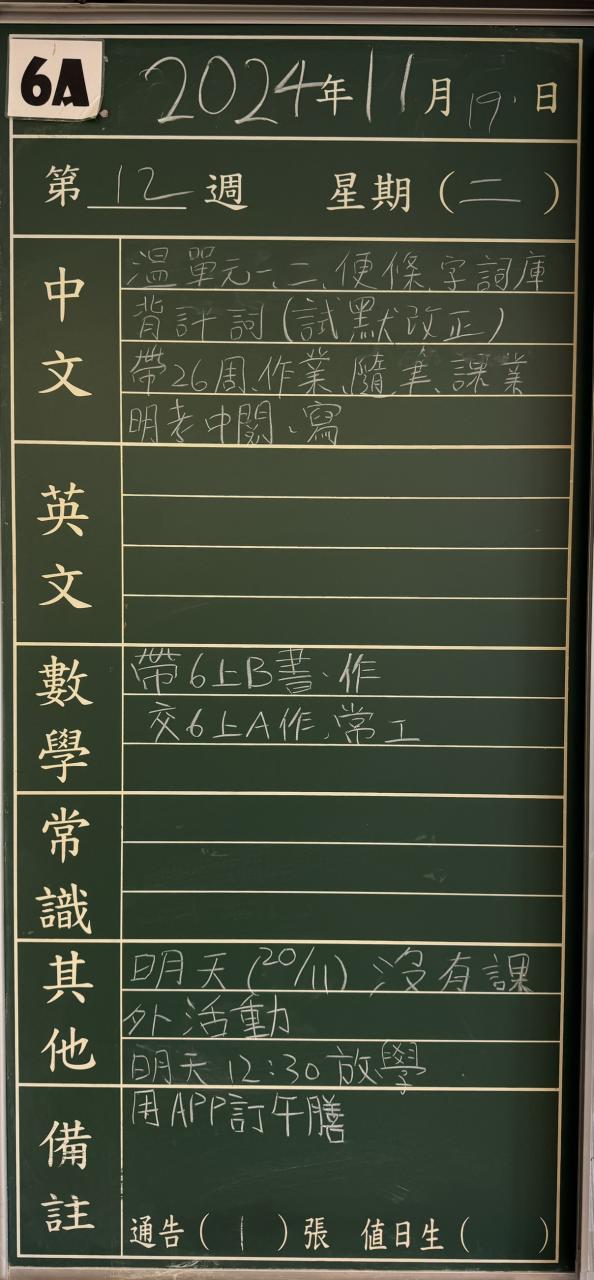 6A
2024年11月19日
第12週 星期(二)
中文
溫單元一、二、便條、字詞庫
背評詞(試默改正)
帶26周、作業、隨筆、課業
明考中閱、寫
英文
數學
帶6上B書、作
交6上A作、常工
常識
其他
明天(20/11)沒有課
外活動
明天12:30放學
備註
用APP訂午膳
通告(1)張 值日生( )